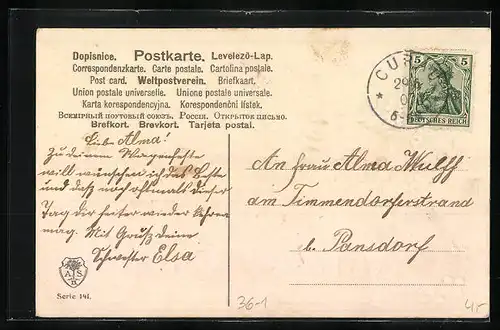 Dopisnice. Postkarte. Levelező-Lap.
Correspondenzkarte. Carte postale. Cartolina postale.
Post card. Weltpostverein. Briefkaart.
Union postale universelle. Unione postale universale.
Karta korespondencyjna. Korespondenční lístek.
Всемірный почтовый союзъ. Россія. Открытое письмо.
Brefkort. Brevkort. Tarjeta postal.
5 5
DEUTSCHES REICH
CU
29
5-
Liebe Alma!
Zu deinem
will wünschen ich das Beste
und daß noch oftmals dieser
Tag der heiter wieder kehren
mag. Mit Gruß deine
Schwester Elsa
An Frau Alma Wulff
am Timmendorferstrand
b. Pansdorf
A S
B
Serie 141.
36-1
4,-